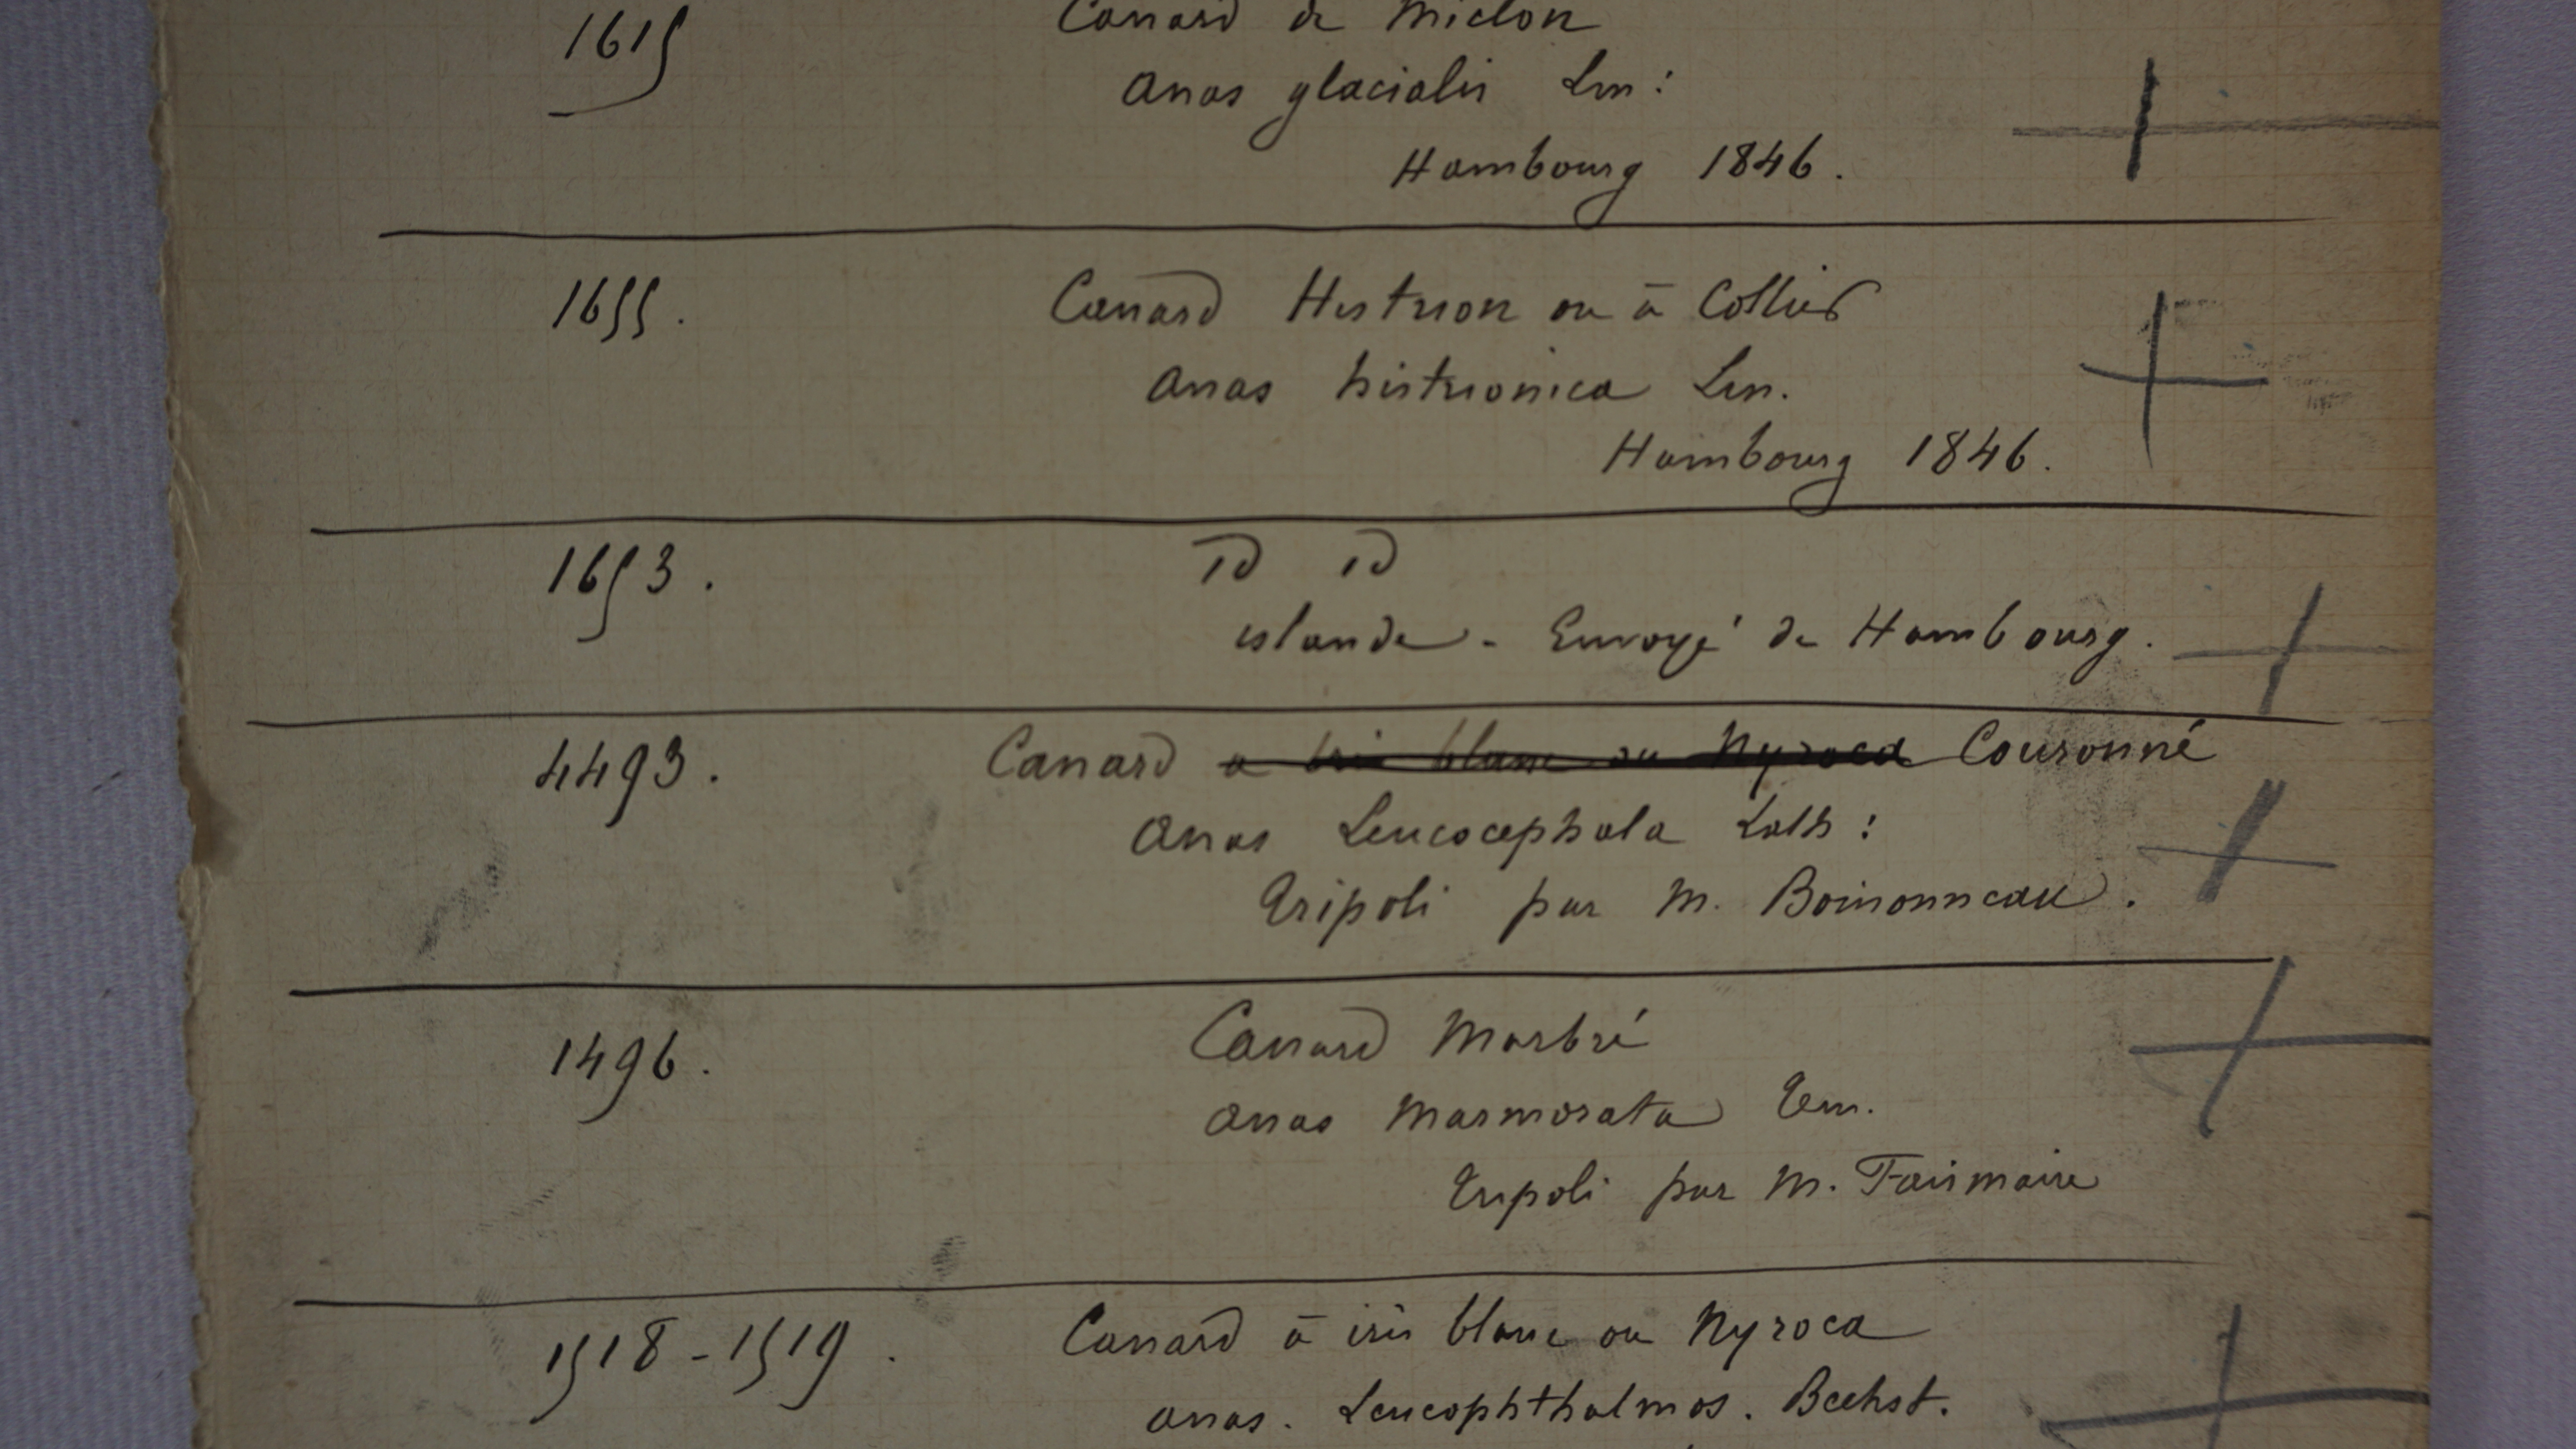 1615 Canard de Miclon
Anas glacialis Lin:
Hambourg 1846.
1655. Canard Histrion ou à Collier
Anas histrionica Lin.
Hambourg 1846.
1653. id id
islande - Envoyé de Hambourg.
4493. Canard a iris blanc ou Nyroca Couronné
Anas Leucocephala Lath:
Tripoli par M. Boinonneau.
1496. Canard Marbré
Anas Marmorata Tem.
Tripoli par M. Fairmaire
1518-1519. Canard à iris blanc ou Nyroca
Anas. Leucophthalmos. Bechst.